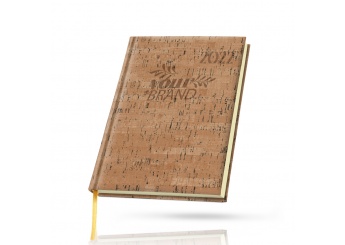 2022
YOUR
BRAND